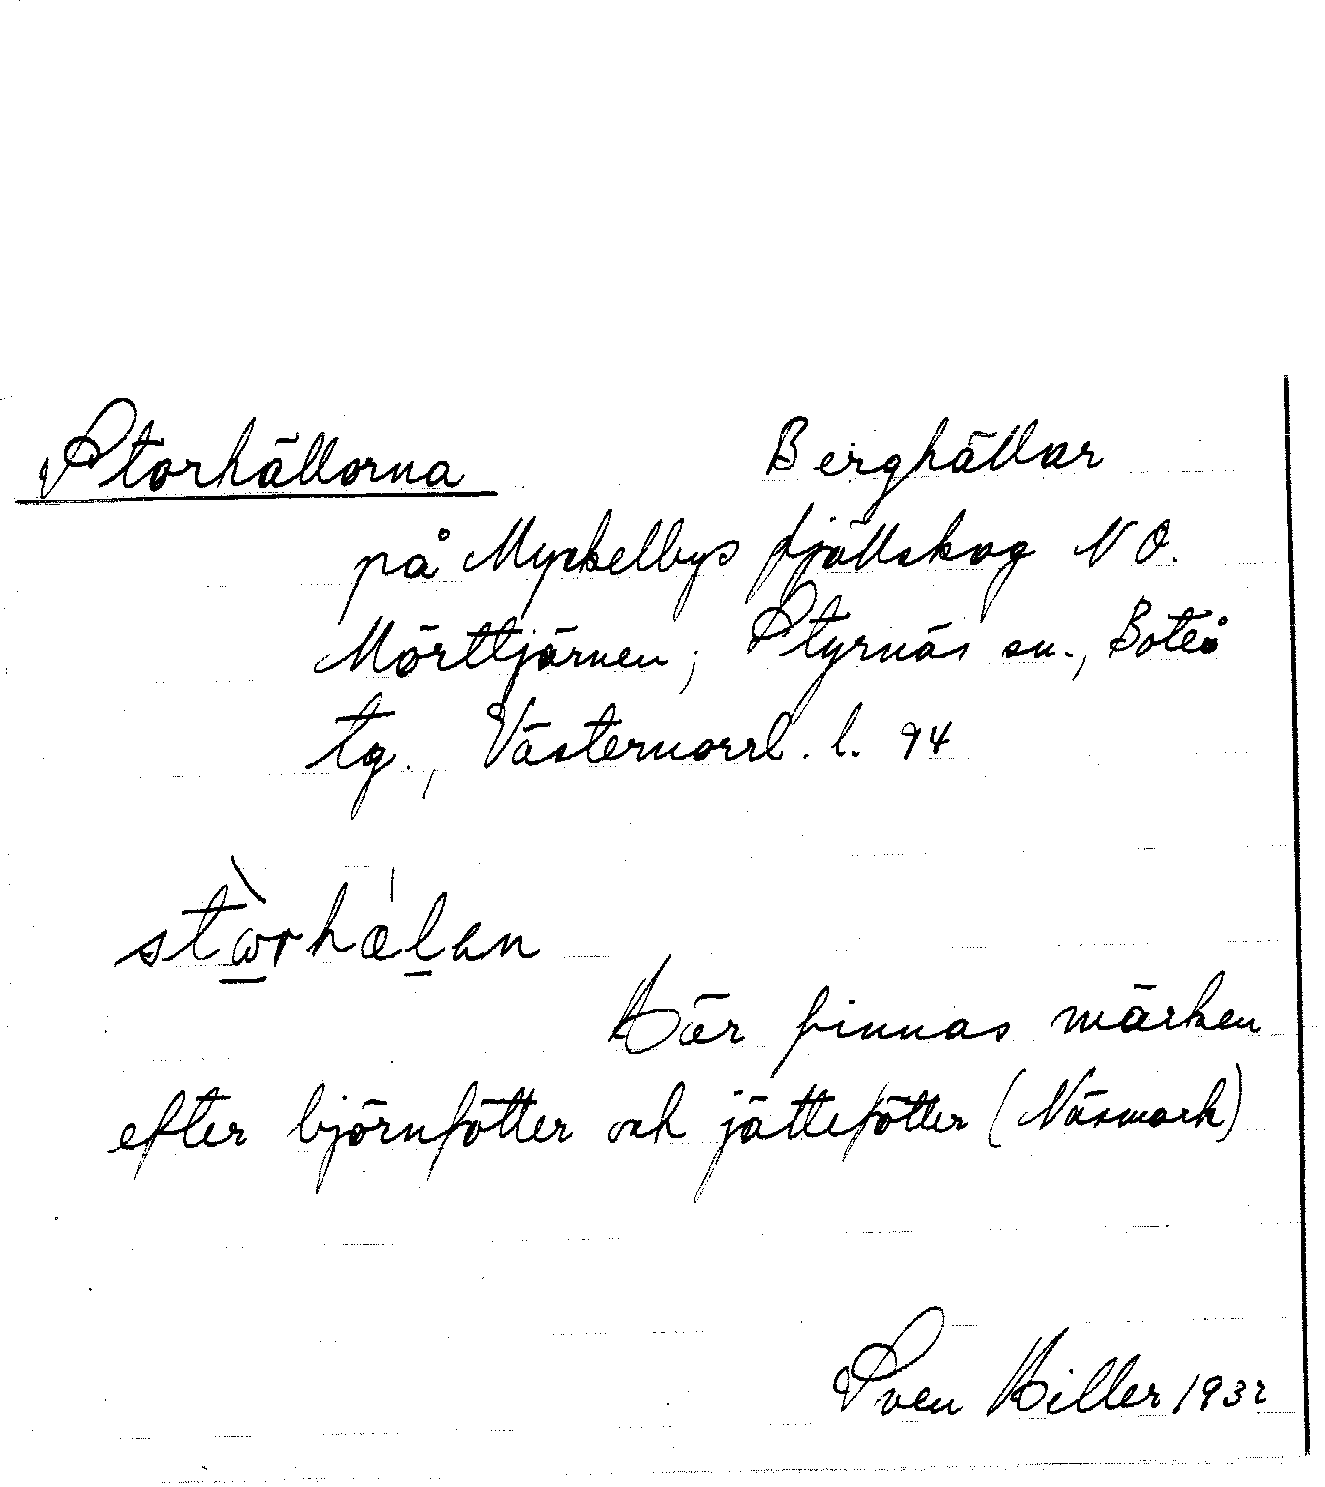 Storhällorna Berghällar
på Myckelbys fjällskog NO.
Mörttjärnen, Styrnäs sn., Boteå
tg., Västernorrl. l. 94
stòrhælan
Här finnas märken
efter björnfötter och jättefötter (Näsmark)
Sven Hiller 1932